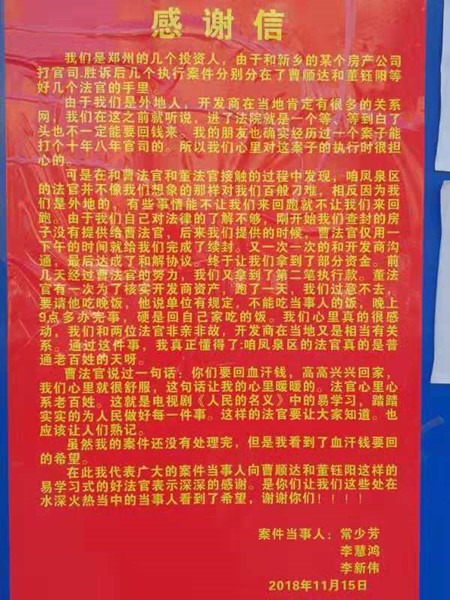 感谢信
我们是郑州的几个投资人，由于和新乡的某个房产公司
打官司.胜诉后几个执行案件分别分在了曹顺达和董钰阳等
好几个法官的手里。
由于我们是外地人，开发商在当地肯定有很多的关系
网，我们在这之前就听说，进了法院就是一个等、等到白了
头也不一定能要回钱来、我的朋友也确实经历过一个案子能
打个十年八年官司的。所以我们心里对这案子的执行时很担
心的。
可是在和曹法官和董法官接触的过程中发现，咱凤泉区
的法官并不像我们想象的那样对我们百般刁难，相反因为我
们是外地的，有些事情能不让我们来回跑就不让我们来回
跑。由于我们自己对法律的了解不够，刚开始我们查封的房
子没有提供给曹法官，后来我们提供的时候，曹法官仅用一
下午的时间就给我们完成了续封。又一次一次的和开发商沟
通，最后达成了和解协议，终于让我们拿到了部分资金。前
几天经过曹法官的努力，我们又拿到了第二笔执行款。董法
官有一次为了核实开发商资产，跑了一天，我们过意不去，
要请他吃晚饭，他说单位有规定，不能吃当事人的饭，晚上
9点多办完事，硬是回自己家吃的饭。我们心里真的很感
动，我们和两位法官非亲非故，开发商在当地又是相当有关
系。通过这件事，我真正懂得了:咱凤泉区的法官真的是普
通老百姓的天呀。
曹法官说过一句话：你们要回血汗钱，高高兴兴回家，
我们心里就很舒服，这句话让我的心里暖暖的。法官心里心
系老百姓。这就是电视剧《人民的名义》中的易学习，踏踏
实实的为人民做好每一件事。这样的法官要让大家知道。也
应该让人们熟记。
虽然我的案件还没有处理完，但是我看到了血汗钱要回
的希望。
在此我代表广大的案件当事人向曹顺达和董钰阳这样的
易学习式的好法官表示深深的感谢。是你们让我们这些处在
水深火热当中的当事人看到了希望，谢谢你们！！！！
案件当事人：常少芳
李慧鸿
李新伟
2018年11月15日